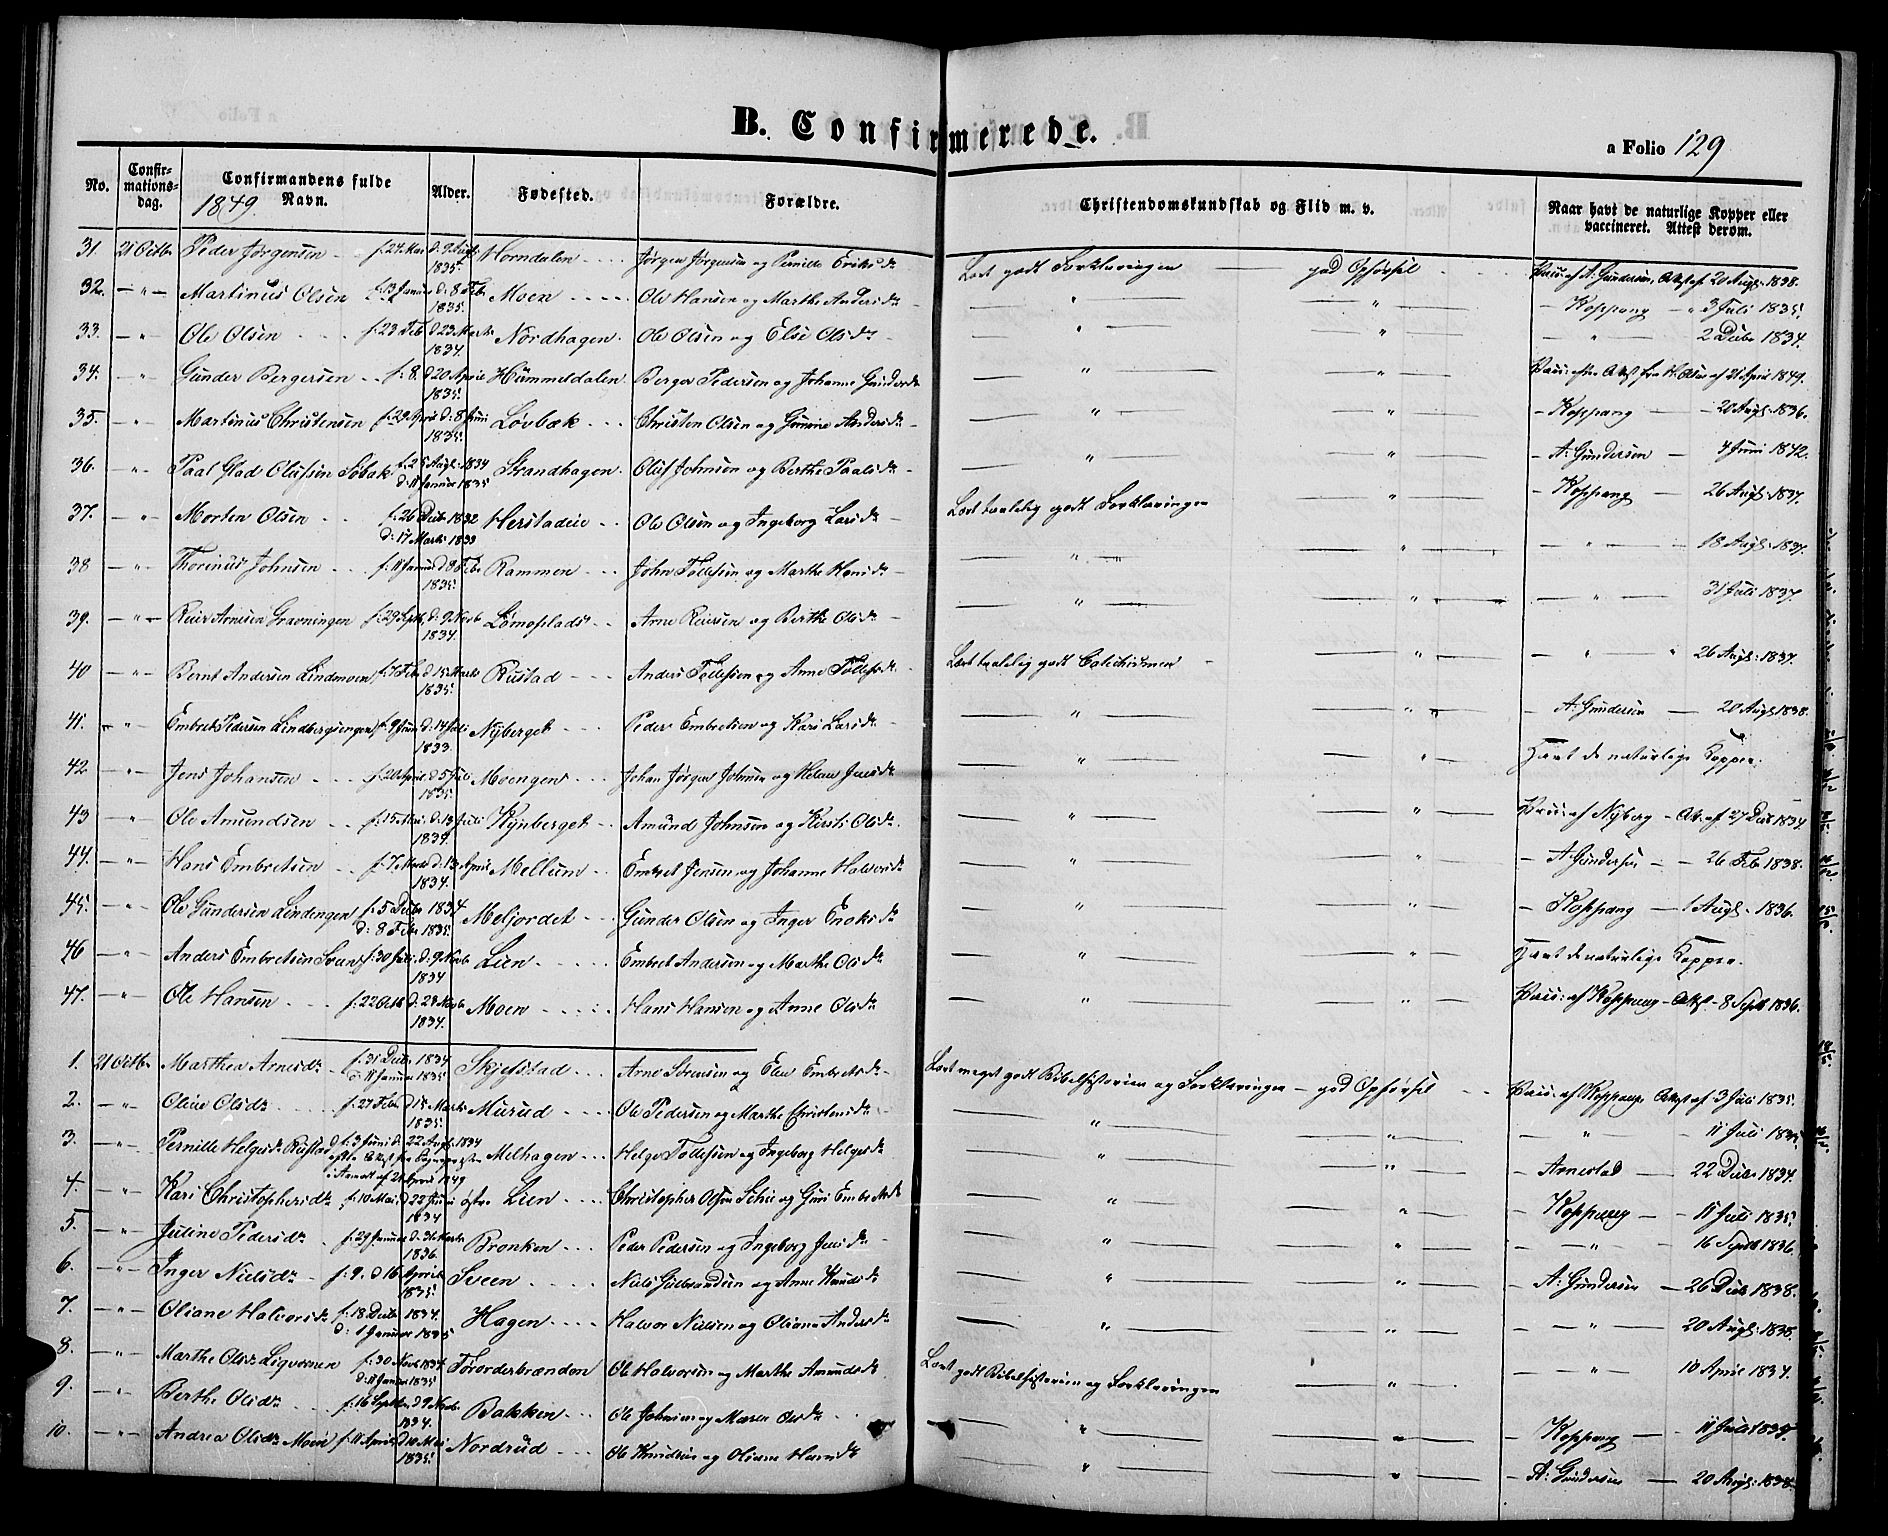 B. Confirmerede.
a Folio 129
No. Confirmationsdag. Confirmandens fulde Navn. Alder. Fødested. Forældre. Christendomskundskab og Flid m. v. Naar havt de naturlige Kopper eller vaccineret. Attest derom.
1849.
31. 21 Octbr Peder Jørgensen 1835. Horndalen Jørgen Jørgensen og Pernille Eriksdr Læst godt Forklaringen god Opførsel Vacc: af A: Gundersen, Attest af 20 Augt 1838.
32. — " — Martinus Olsen f. 13 Januar d: 8 Feb 1835. Moen Ole Hansen og Marthe Andersdr " " — Koppang — " 3 Juli 1835.
33. — " — Ole Olsen f. 23 Feb d 23 Marts 1834. Nordhagen Ole Olsen og Else Olsdr " " — " — 2 Decbr 1834.
34. — " Gunder Bergersen f: 8. d 20 April 1835. Hummeldalen Berger Pedersen og Johanne Gundersdr " " 21 April 1849.
35. — " Martinus Christensen f: 29 April d: 8 Juni 1835. Løvbæk Christen Olsen og Andersdr " " — Koppang — 20 Augt 1836.
36. — " Paal Glad Olufsen Søbak Augt 1834 d: 11 Januar 1835 Strandhagen Oluf Johnsen og Berthe Paalsdr " " — A: Gundersen — 4 Juni 1842.
37. — " Morten Olsen f: 26 Decbr 1832 d: 17 Marts 1833 Herstadeie Ole Olsen og Ingeborg Larsdr Læst taalelig godt Forklaringen " — Koppang — 26 Augt 1837.
38 — " — Thorinus Johnsen f: 11 Januar d 8 Feb 1835. Rammen John Tollefsen og Marthe " " — " — 18 Augt 1837.
39. — " — Reier Arnesen Gravningen f: 29 Septb d: 9 Novb 1834. Lømoplads Arne Reiersen og Berthe Olsdr " " — " — 31 Juli 1837.
40 — " — Bernt Andersen Lindmoen d 15 Marts 1835. Rustad Anders Tollefsen og Anne Tollefsdr Læst taalelig godt Catechismen " — " — 26 Augt 1837.
41. — " — Embret Pedersen Lindbergsengen d: 14 Juli 1833. Nyberget Peder Embretsen og Kari Larsdr " " — A: Gundersen — 20 Augt 1838.
42 — " — Jens Johansen f. 20 April d 5 Juli 1835. Moengen Johan Jørgen Johnsen og Helene Jensdr " " Havt de naturlige Kopper.
43 — " — Ole Amundsen f. 15 Mai d: 13 Juli 1834. Kynberget Amund Johnsen og Kirsti Olsdr " " Vacc: af Nyberg — Att. af 27 Decbr 1834
44. — " — Hans Embretsen f. 7 Marts d. 13 April 1834. Mellum Embret Jensen og Johanne Halvorsdr " " — A: Gundersen — 26 Feb 1838.
45. — " — Ole Gundersen Lindengen f: 5 Decbr 1834 d: 8 Feb 1835. Meljordet Gunder Olsen og Inger Enoksdr " " — Koppang — 1 Augt 1836.
46 — " — Anders Embretsen f: 30 d: 9 Novb 1834 Lien Embret Andersen og Marthe Olsdr " " Havt de naturlige Kopper.
47. — " — Ole Hansen f. 22 Octb 1834. Moen Hans Hansen og Anne Olsdr " " Vacc: af Koppang — Attest — 8 Septb 1836.
1. 21 Octbr Marthea Arnesdr f: 31 Decbr 1834 d: 11 Januar 1835 Skjefstad Arne Sørensen og Elen Embretsdr Læst meget godt Bibelhistorien og Forklaringen — god Opførsel Vacc: af Koppang Attest af 3 Juli 1835.
2. — " — Oline Olsdr f. 27 Feb d 15 Marts 1835. Murud Ole Pedersen og Marthe Christensdr " " — " — 11 Juli 1835
3. — " — Pernille Helgesdr Rustad f. 3 Juni d. 22 Augt 1834 Melhagen Helge Tollefsen og Ingeborg Helgesdr " " — Arnestad — 22 Decbr 1834.
4. — " — Kari Christophersdr f: 10 Mai d 22 Juni 1834 Lien Christopher Olsen og Guri Embretsdr " " — Koppang — 11 Juli 1835.
5. — " — Juline Pedersdr f. 27 Januar 1836. Bronken Peder Pedersen og Ingeborg Jensdr " " — " — 16 Septb 1836.
6. — " — Inger Nielsdr f: 9. d 16 April 1835. Sveen Niels Gulbrandsen og Anne Knudsdr " " — A: Gundersen — 26 Decbr 1838.
7. — " — Oliane Halvorsdr f: 18 Decbr 1834. d: 1 Januar 1835 Hagen Halvor Nielsen og Oliane Andersdr " " — " — 20 Augt 1838.
8. — " — Marthe Olsdr f: 30 Novb 1834. d: 11 Januar 1835 Førorderbrænden Ole Halvorsen og Marthe Amundsdr Læst godt Bibelhistorien og Forklaringen " — " — 10 April 1837.
9. — " — Berthe Olsdr f. 16 Septbr d 9 Novb 1834. Bakken Ole Johnsen og Maren Olsdr " " — Koppang — 11 Juli 1835.
10. — " — Andrea Olsdr Moen f. 11 April d 10 Mai 1835. Nordrud Ole Knudsen og Oliane Hansdr " " — A: Gundersen — 20 Augt 1838